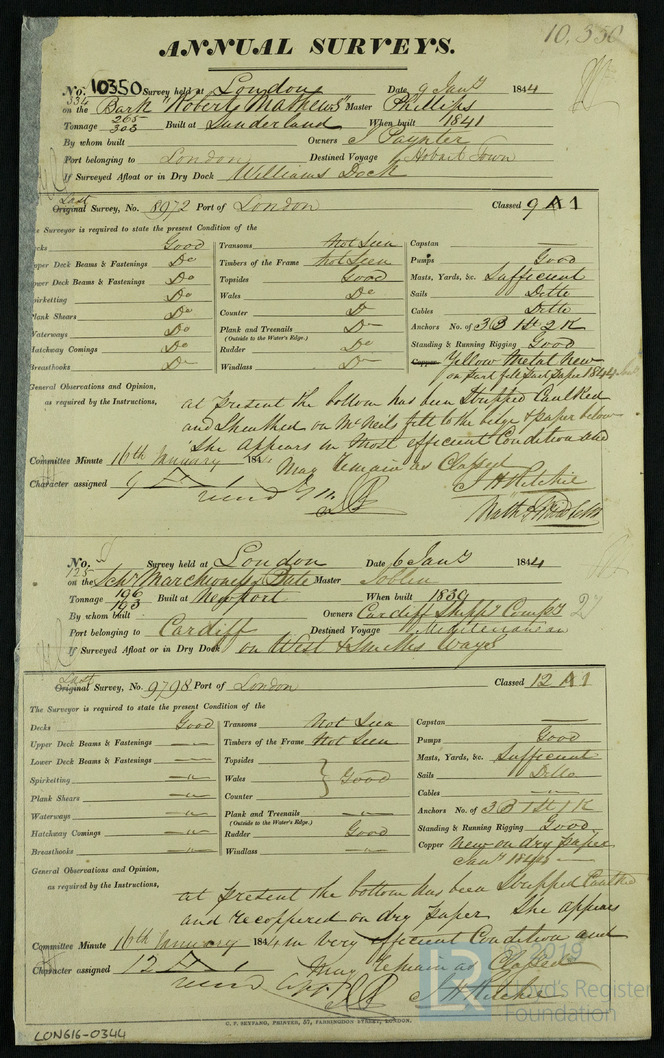 10,350
ANNUAL SURVEYS.
No. 10350 Survey held at London Date 9 Jany 1844
334
on the Bark "Robert Mathews" Master Phillips
Tonnage 265 303 Built at Sunderland When built 1841
By whom built Owners J Paynter
Port belonging to London Destined Voyage Hobart Town
If Surveyed Afloat or in Dry Dock Williams Dock
Last
Original Survey, No. 8972 Port of London Classed 9 A 1
The Surveyor is required to state the present Condition of the
Decks Good Transoms Not Seen Capstan —
Upper Deck Beams & Fastenings Do Timbers of the Frame Not Seen Pumps Good
Lower Deck Beams & Fastenings Do Topsides Good Masts, Yards, &c. Sufficient
Spirketting Do Wales Do Sails Ditto
Plank Shears Do Counter Do Cables Ditto
Waterways Do Plank and Treenails Do Anchors No. of 3 B 1 St 2 K
(Outside to the Water's Edge.)
Hatchway Comings Do Rudder Do Standing & Running Rigging Good
Breasthooks Do Windlass Do Copper Yellow Metal New
on part felt part paper 1844
General Observations and Opinion,
as required by the Instructions,
at present the bottom has been Stripped Caulked
and Sheathed on McNeils felt to the & paper below
She appears in most efficient Condition and
Committee Minute 16th January 184 May remain as Classed
Character assigned 9 A 1 J H Ritchie
No. Survey held at London Date 6 Jany 1844
125
on the Schr Marchioness Bute Master
Tonnage 196 193 Built at Newport When built 1839
By whom built Owners Cardiff Shippg Compy 27
Port belonging to Cardiff Destined Voyage Mediterranean
If Surveyed Afloat or in Dry Dock on West & Smiths Ways
Last
Original Survey, No. 9798 Port of London Classed 12 A 1
The Surveyor is required to state the present Condition of the
Decks Good Transoms Not Seen Capstan —
Upper Deck Beams & Fastenings —"— Timbers of the Frame Not Seen Pumps Good
Lower Deck Beams & Fastenings —"— Topsides Masts, Yards, &c. Sufficient
Spirketting —"— Wales Good Sails Ditto
Plank Shears —"— Counter Cables —"—
Waterways —"— Plank and Treenails —"— Anchors No. of 3 B 1 St 1 K
(Outside to the Water's Edge.)
Hatchway Comings —"— Rudder Good Standing & Running Rigging Good
Breasthooks —"— Windlass —"— Copper New on dry paper
Jany 1844
General Observations and Opinion,
as required by the Instructions,
at present the bottom has been Stripped Caulked
and recoppered on dry paper She appears
Committee Minute 16th January 1844 in very efficient Condition and
Character assigned 12 A 1 May remain as Classed
J H Ritchie
C. F. SEYFANG, PRINTER, 57, FARRINGDON STREET, LONDON.
LON616-0344
© 2019
LR
Lloyd's Register
Foundation